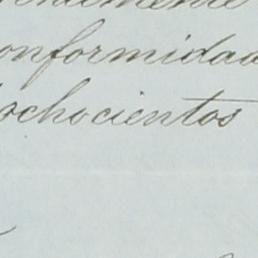 onformidad
ochocientos